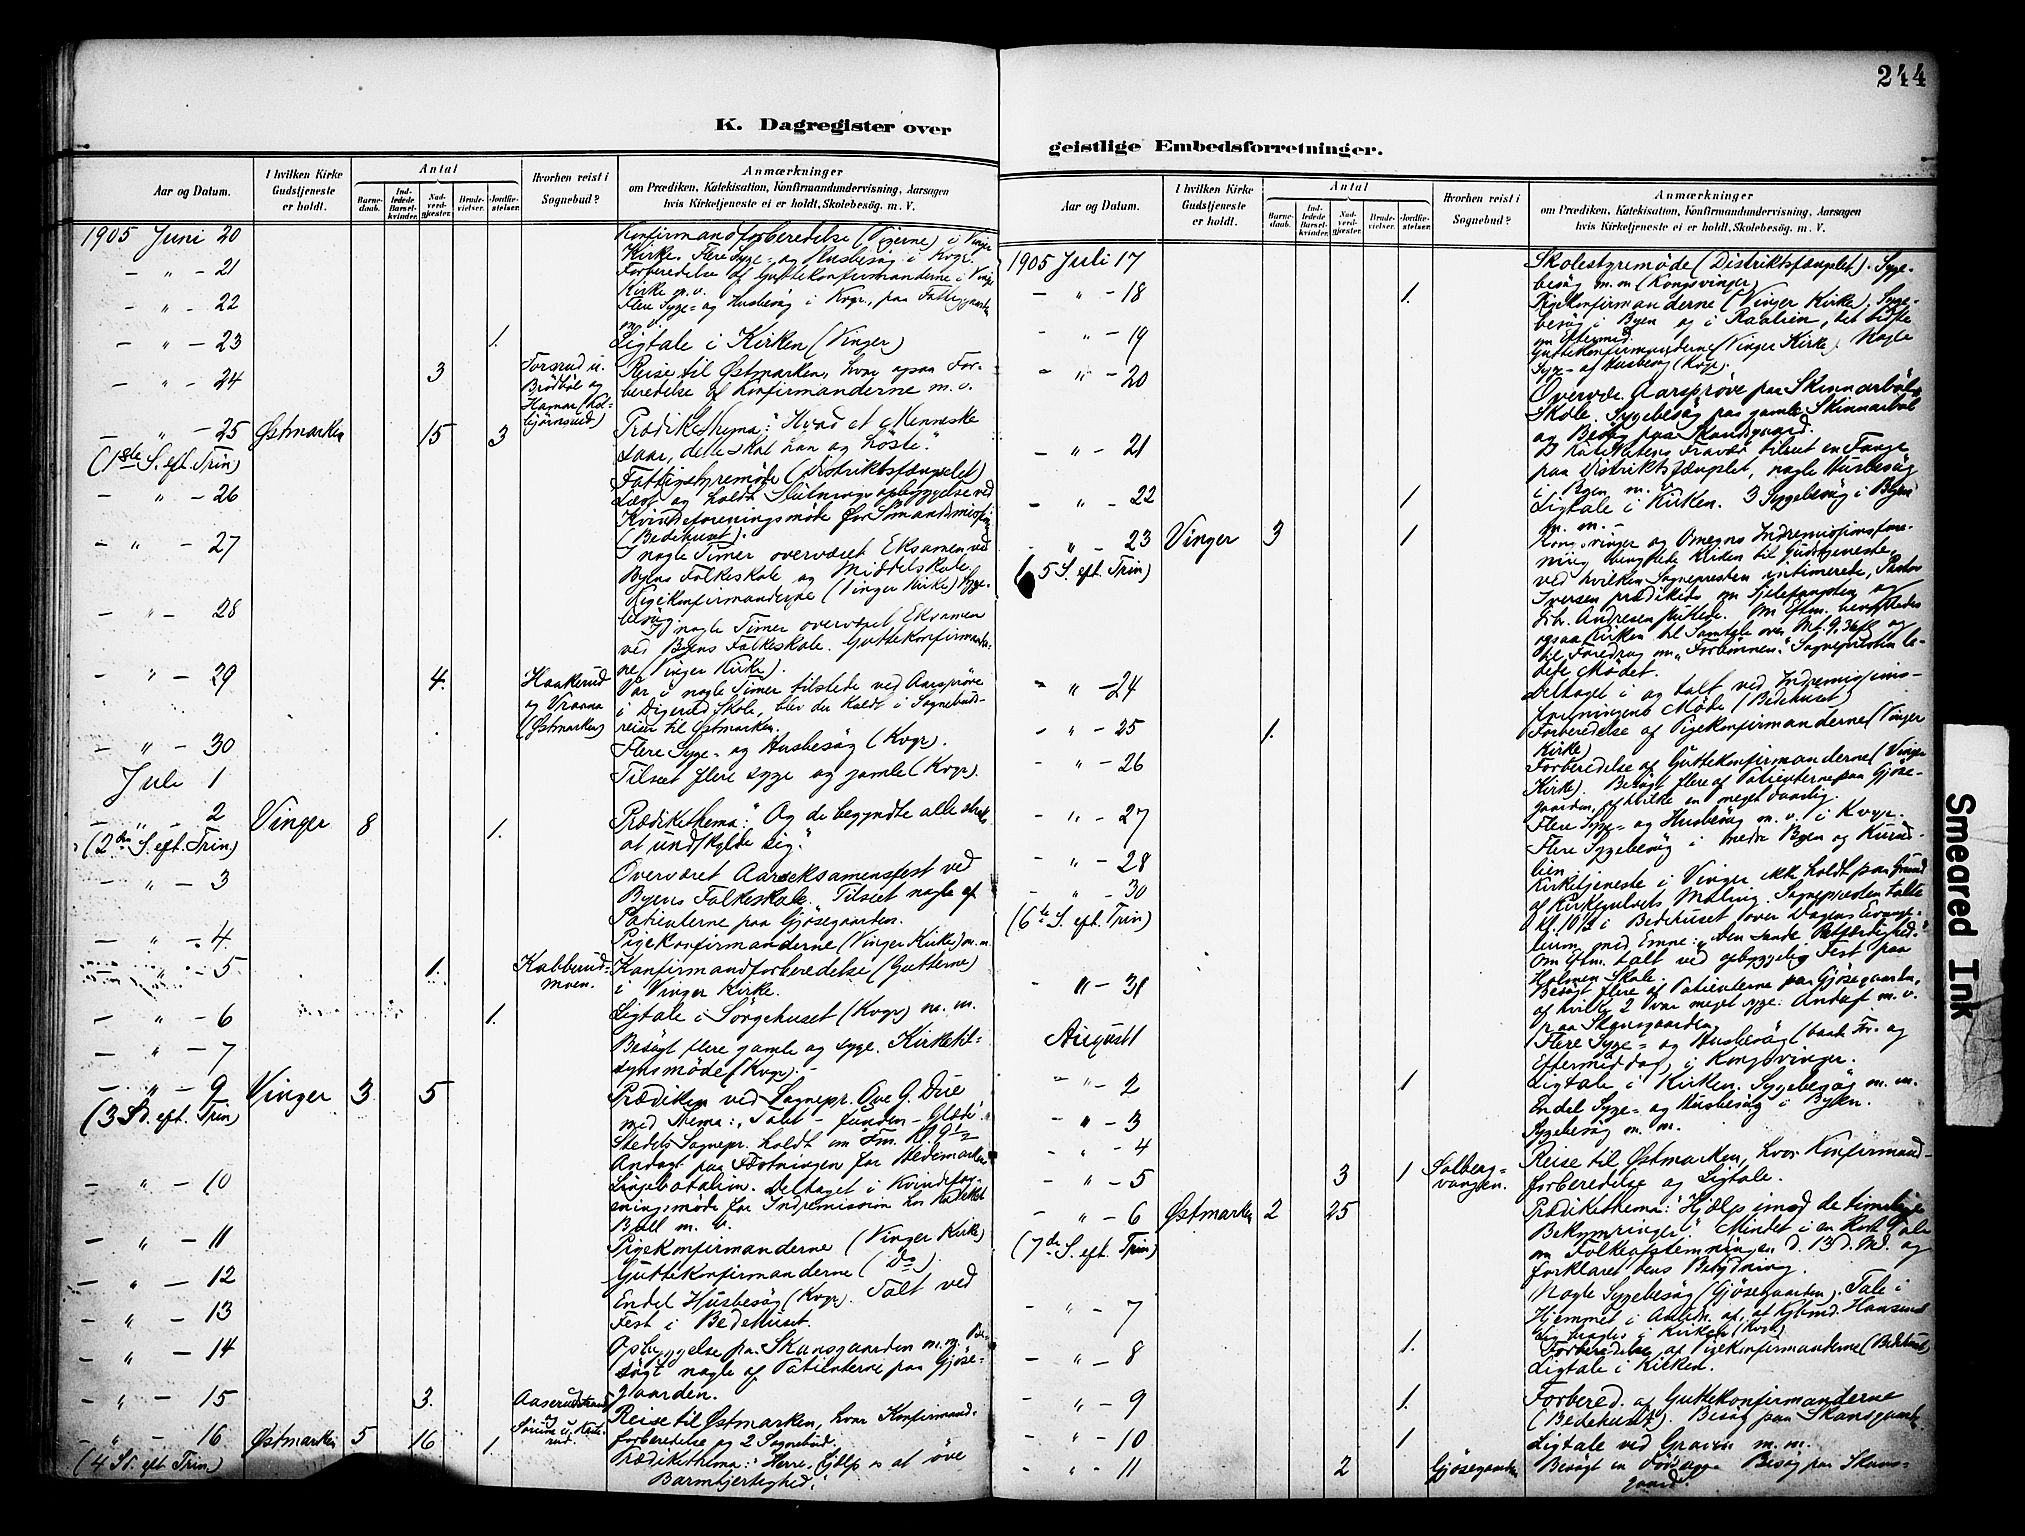 244
K. Dagregister over
geistlige Embedsforretninger.
Aar og Datum.
I hvilken Kirke Gudstjeneste er holdt.
Antal
Barnedaab.
Indledede Barselkvinder.
Nadverdgjester.
Brudevielser.
Jordfæstelser.
Hvorhen reist i Sognebud?
Anmærkninger
om Prædiken, Katekisation, Konfirmandundervisning, Aarsagen
hvis Kirketjeneste ei er holdt, Skolebesøg. m. V.
1905 Juni 20
Konfirmandforberedelse (Pigerne) i Vinger
Kirke. Flere Syge- og Husbesøg i Kvgr.
- " - 21
Forberedelse af Guttekonfirmanderne i Vinger
Kirke m.v.
- " - 22
Flere Syge- og Husbesøg i Kvgr., paa Fattiggaarden
m.v.
- " - 23 1.
Ligtale i Kirken (Vinger)
- " - 24 3
Reise til Østmarken, hvor ogsaa For-
beredelse af Konfirmanderne m.v.
- " - 25 Østmarken 15 3
(1ste S. eft. Trin)
Prædikethema: "Hvad et Menneske
saar, dette skal han og høste".
- " - 26
Fattigstyremøde (Distriktsfængslet)
Læst og holdt Slutningsopbyggelse ved
Kvindeforeningsmøde for Sømandsmission
(Bedehuset).
- " - 27
I nogle Timer overværet Eksamen ved
Byens Folkeskole og Middelskole.
Pigekonfirmanderne (Vinger Kirke) Syge-
besøg.
- " - 28
I nogle Timer overværet Eksamen
ved Byens Folkeskole. Guttekonfirmander-
ne (Vinger Kirke).
- " - 29 4. Haakerud
og Vraana
(Østmarken)
Var i nogle Timer tilstede ved Aarsprøve
i Digerud Skole, blev der kaldt i Sognebuds-
reiser til Østmarken.
- " - 30
Flere Syge- og Husbesøg (Kvgr).
Juli 1
Tilseet flere syge og gamle (Kvgr).
- " - 2 Vinger 8 1.
(2den S. eft. Trin)
Prædikethema: "Og de begyndte alle strax
at undskylde sig".
- " - 3
Overværet Aarseksamensfest ved
Byens Folkeskole. Tilseet nogle af
Patienterne paa Gjøsegaarden.
- " - 4.
Pigekonfirmanderne (Vinger Kirke) m.m.
- " - 5 1. Kabberud-
moen.
Konfirmandforberedelse (Gutterne)
i Vinger Kirke.
- " - 6 1.
Ligtale i Sørgehuset (Kvgr) m.m.
- " - 7
Besøgt flere gamle og syge. Kirketil-
synsmøde (Kvgr).
- " - 9 Vinger 3 5
(3 S. eft. Trin)
Prædiken ved Sognepr. Ove G. Due
med Thema: "Tabt - funden - Glæde".
Stedets Sognepr. holdt om Fm. Kl. 9½
Andagt paa Fæstningen for Hedemarkens
Linjebatalion.
- " - 10
Deltaget i Kvindefor-
eningsmøde for Indremission hos
m.v.
- " - 11
Pigekonfirmanderne (Vinger Kirke)
- " - 12
Guttekonfirmanderne (Do).
- " - 13
Endel Husbesøg (Kvgr). Talt ved
Fest i Bedehuset.
- " - 14
Opbyggelse paa Skansgaarden m.m. Be-
søgt nogle af Patienterne paa Gjøse-
gaarden.
- " - 15 3.
Reise til Østmarken, hvor Konfirmand-
forberedelse og 2 Sognebud.
- " - 16 Østmarken 5 16 1
(4 S. eft. Trin)
Prædikethema: "Herre, hjælp os at øve
Barmhjertighed!"
1905 Juli 17
Skolestyremøde (Distriktsfængslet). Syge-
besøg m.m (Kongsvinger)
- " - 18 1.
Pigekonfirmanderne (Vinger Kirke). Syge-
besøg i Byen og i Raalien, det sidste
om Eftermid.
- " - 19
Guttekonfirmanderne (Vinger Kirke). Nogle
Syge- og Husbesøg (Kvgr).
- " - 20
Overvær. Aarsprøve paa Skinnarbøl
Skole. Sygebesøg paa gamle Skinnarbøl
og Besøg paa Skansgaard.
- " - 21
I Kate Fravær tilseet en Fange
paa Distriktsfængslet, nogle Husbesøg
i Byen m.v.
- " - 22 1
Ligtale i Kirken. 3 Sygebesøg i Byen
m.m.
- " - 23 Vinger 3 1
(5 S. eft. Trin)
Kongsvinger og Omegns Indremissionsfore-
ning benyttede Kirken til Gudstjeneste,
ved hvilken Sognepresten intimerede, Pastor
Iversen prædikede om Sjelefangsten og
Andresen sluttede. Om Eftm. benyttedes
ogsaa Kirken til Samtale over Mt. 9. 36 ff og
til Foredrag om "Forbønnen". Sognepresten le-
dede Mødet.
- " - 24
Deltaget i og talt ved Indremissions-
foreningens Møde (Bedehuset)
- " - 25 1.
Forberedelse af Pigekonfirmanderne (Vinger
Kirke)
- " - 26
Forberedelse af Guttekonfirmanderne (Vinger
Kirke). Besøgt flere af Patienterne paa Gjøse-
gaarden, af hvilke en meget daarlig.
- " - 27
Flere Syge- og Husbesøg m.v. i Kvgr.
- " - 28
Flere Sygebesøg i nedre Byen og Kurud-
lien.
- " - 30
(6te S. eft. Trin)
Kirketjeneste i Vinger ikke holdt paa Grund
af Kirkegulvets Maling. Sognepresten talte
Kl. 10½ i Bedehuset over Dagens Evange-
lium med Emne: "Den sande Retfærdighed."
Om Eftm. talt ved opbyggelig Fest paa
Holmen Skole.
- " - 31
Besøgt flere af Patienterne paa Gjøsegaarden,
af hvilke 2 var meget syge. Andagt m.v.
paa Skansgaarden.
August 1
Flere Syge- og Husbesøg (baade For- og
Eftermiddag) i Kongsvinger.
- " - 2 1
Ligtale i Kirken. Sygebesøg m.m.
- " - 3
Endel Syge- og Husbesøg i Byen.
- " - 4
Sygebesøg m.m.
- " - 5 3 1 Solberg-
vangen.
Reise til Østmarken, hvor Konfirmand-
forberedelse og Ligtale.
- " - 6 Østmarken 2 25
(7de S. eft. Trin)
Prædikethema: "Hjælp imod de timelige
Bekymringer." Mindet i en kort Tale
om Folkeafstemningen d. 13 d. Md. og
forklaret dens Betydning.
- " - 7
Nogle Sygebesøg (Gjøsegaarden). Tale i
Hjemmet i Anledn. af, at Hansens
Lig bragtes i Kirken (Kvgr)
- " - 8 1.
Forberedelse af Pigekonfirmanderne (Bedehuset)
Ligtale i Kirken.
- " - 9 1.
Forbered. af Guttekonfirmanderne
(Bedehuset). Besøg paa Skansgaard.
- " - 10 1
Ligtale ved Graven m.m.
- " - 11 2 Gjøsegaarden
Besøgt en Dødssyg. Besøg paa Skans-
gaard.
Smeared Ink